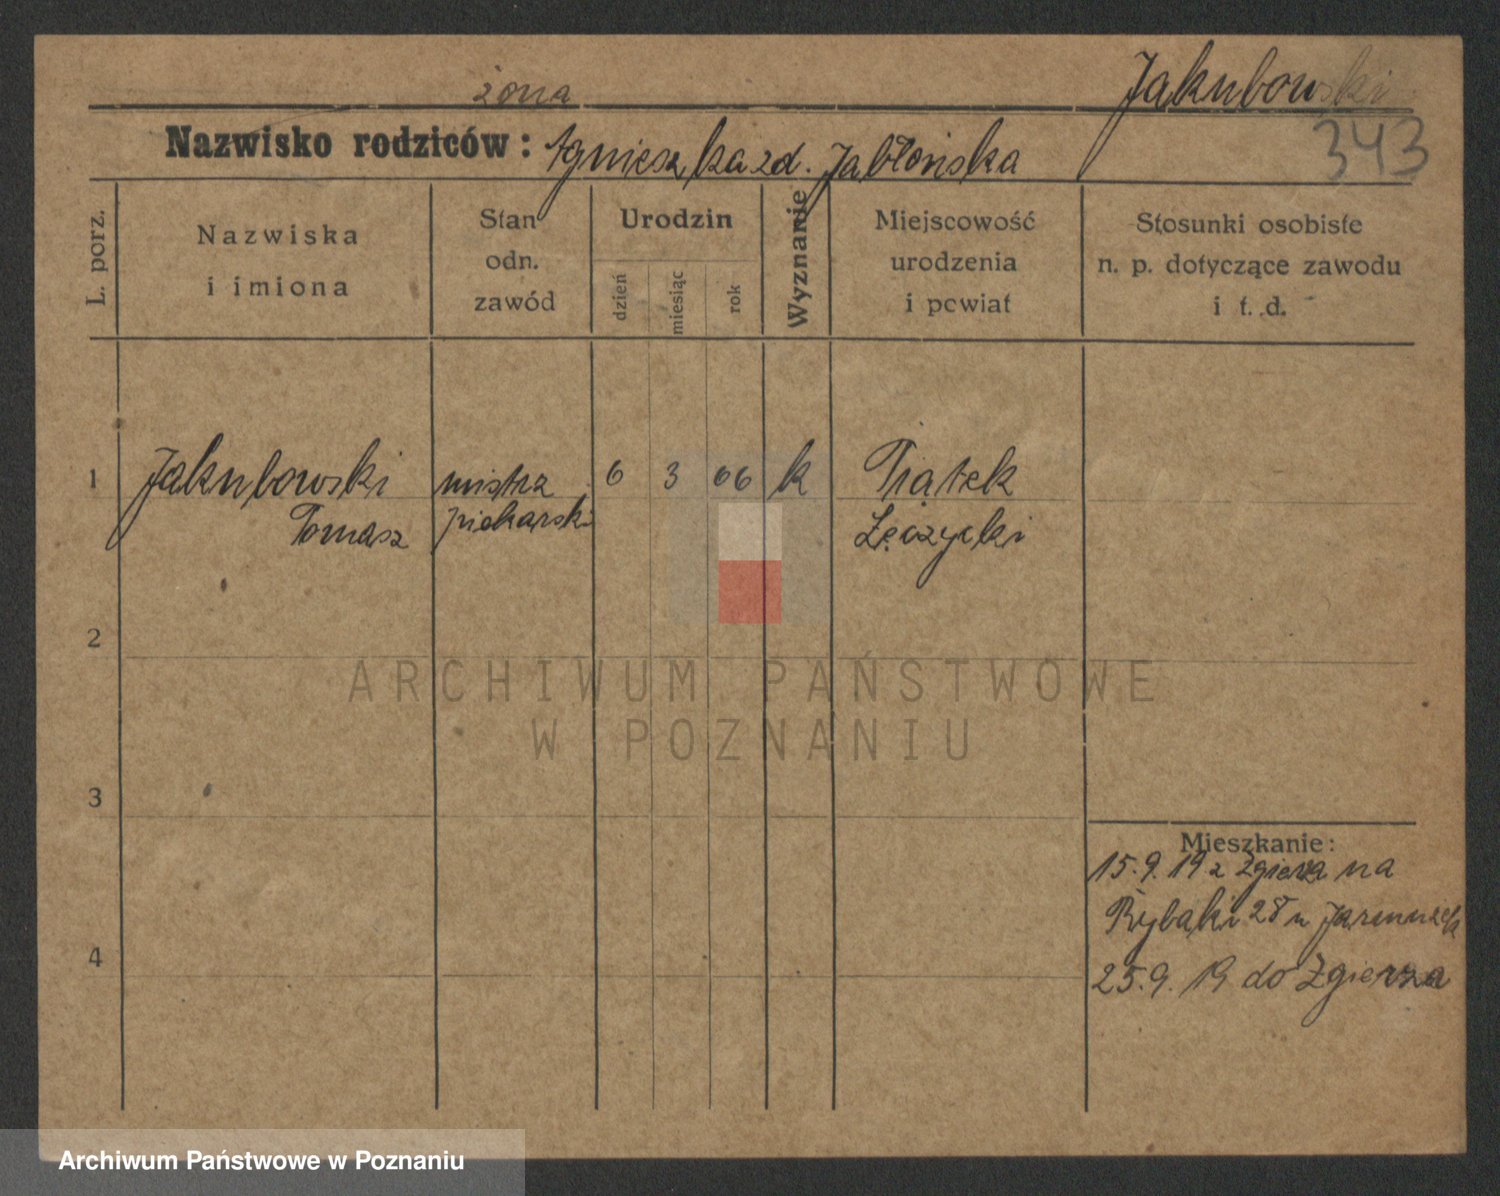 żona
Jakubowski
343
Nazwisko rodziców: Agnieszka zd. Jabłońska
L. porz.
Nazwiska
i imiona
Stan
odn.
zawód
Urodzin
dzień
miesiąc
rok
Wyznanie
Miejscowość
urodzenia
i powiat
Stosunki osobiste
n. p. dotyczące zawodu
i t. d.
1 Jakubowski mistrz 6 3 66 k Piątek
Tomasz piekarski Łęczycki
2
ARCHIWUM PAŃSTWOWE
W POZNANIU
3
Mieszkanie:
15.9.19 z Zgierza na
Rybaki 28 u
4
25.9.19 do Zgierza
Archiwum Państwowe w Poznaniu